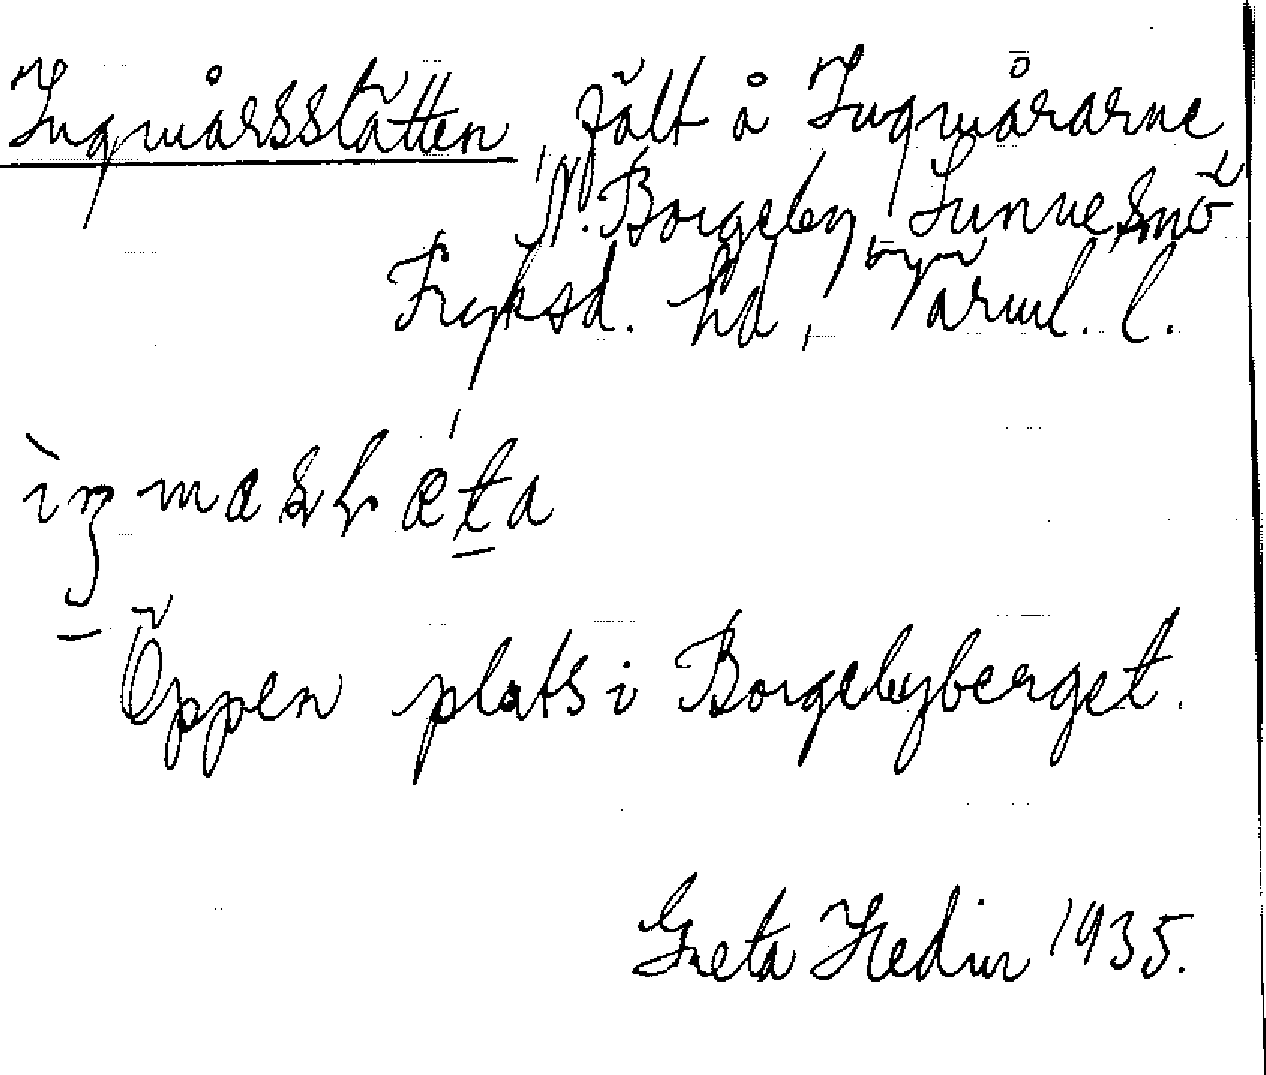 Ingmårsstätten, fält å Ingmårarne
N. Borgeby, Sunne snö
Fryksd. hd, Värml. l.
Öppen plats i Borgebyberget.
Greta Hedin 1935.